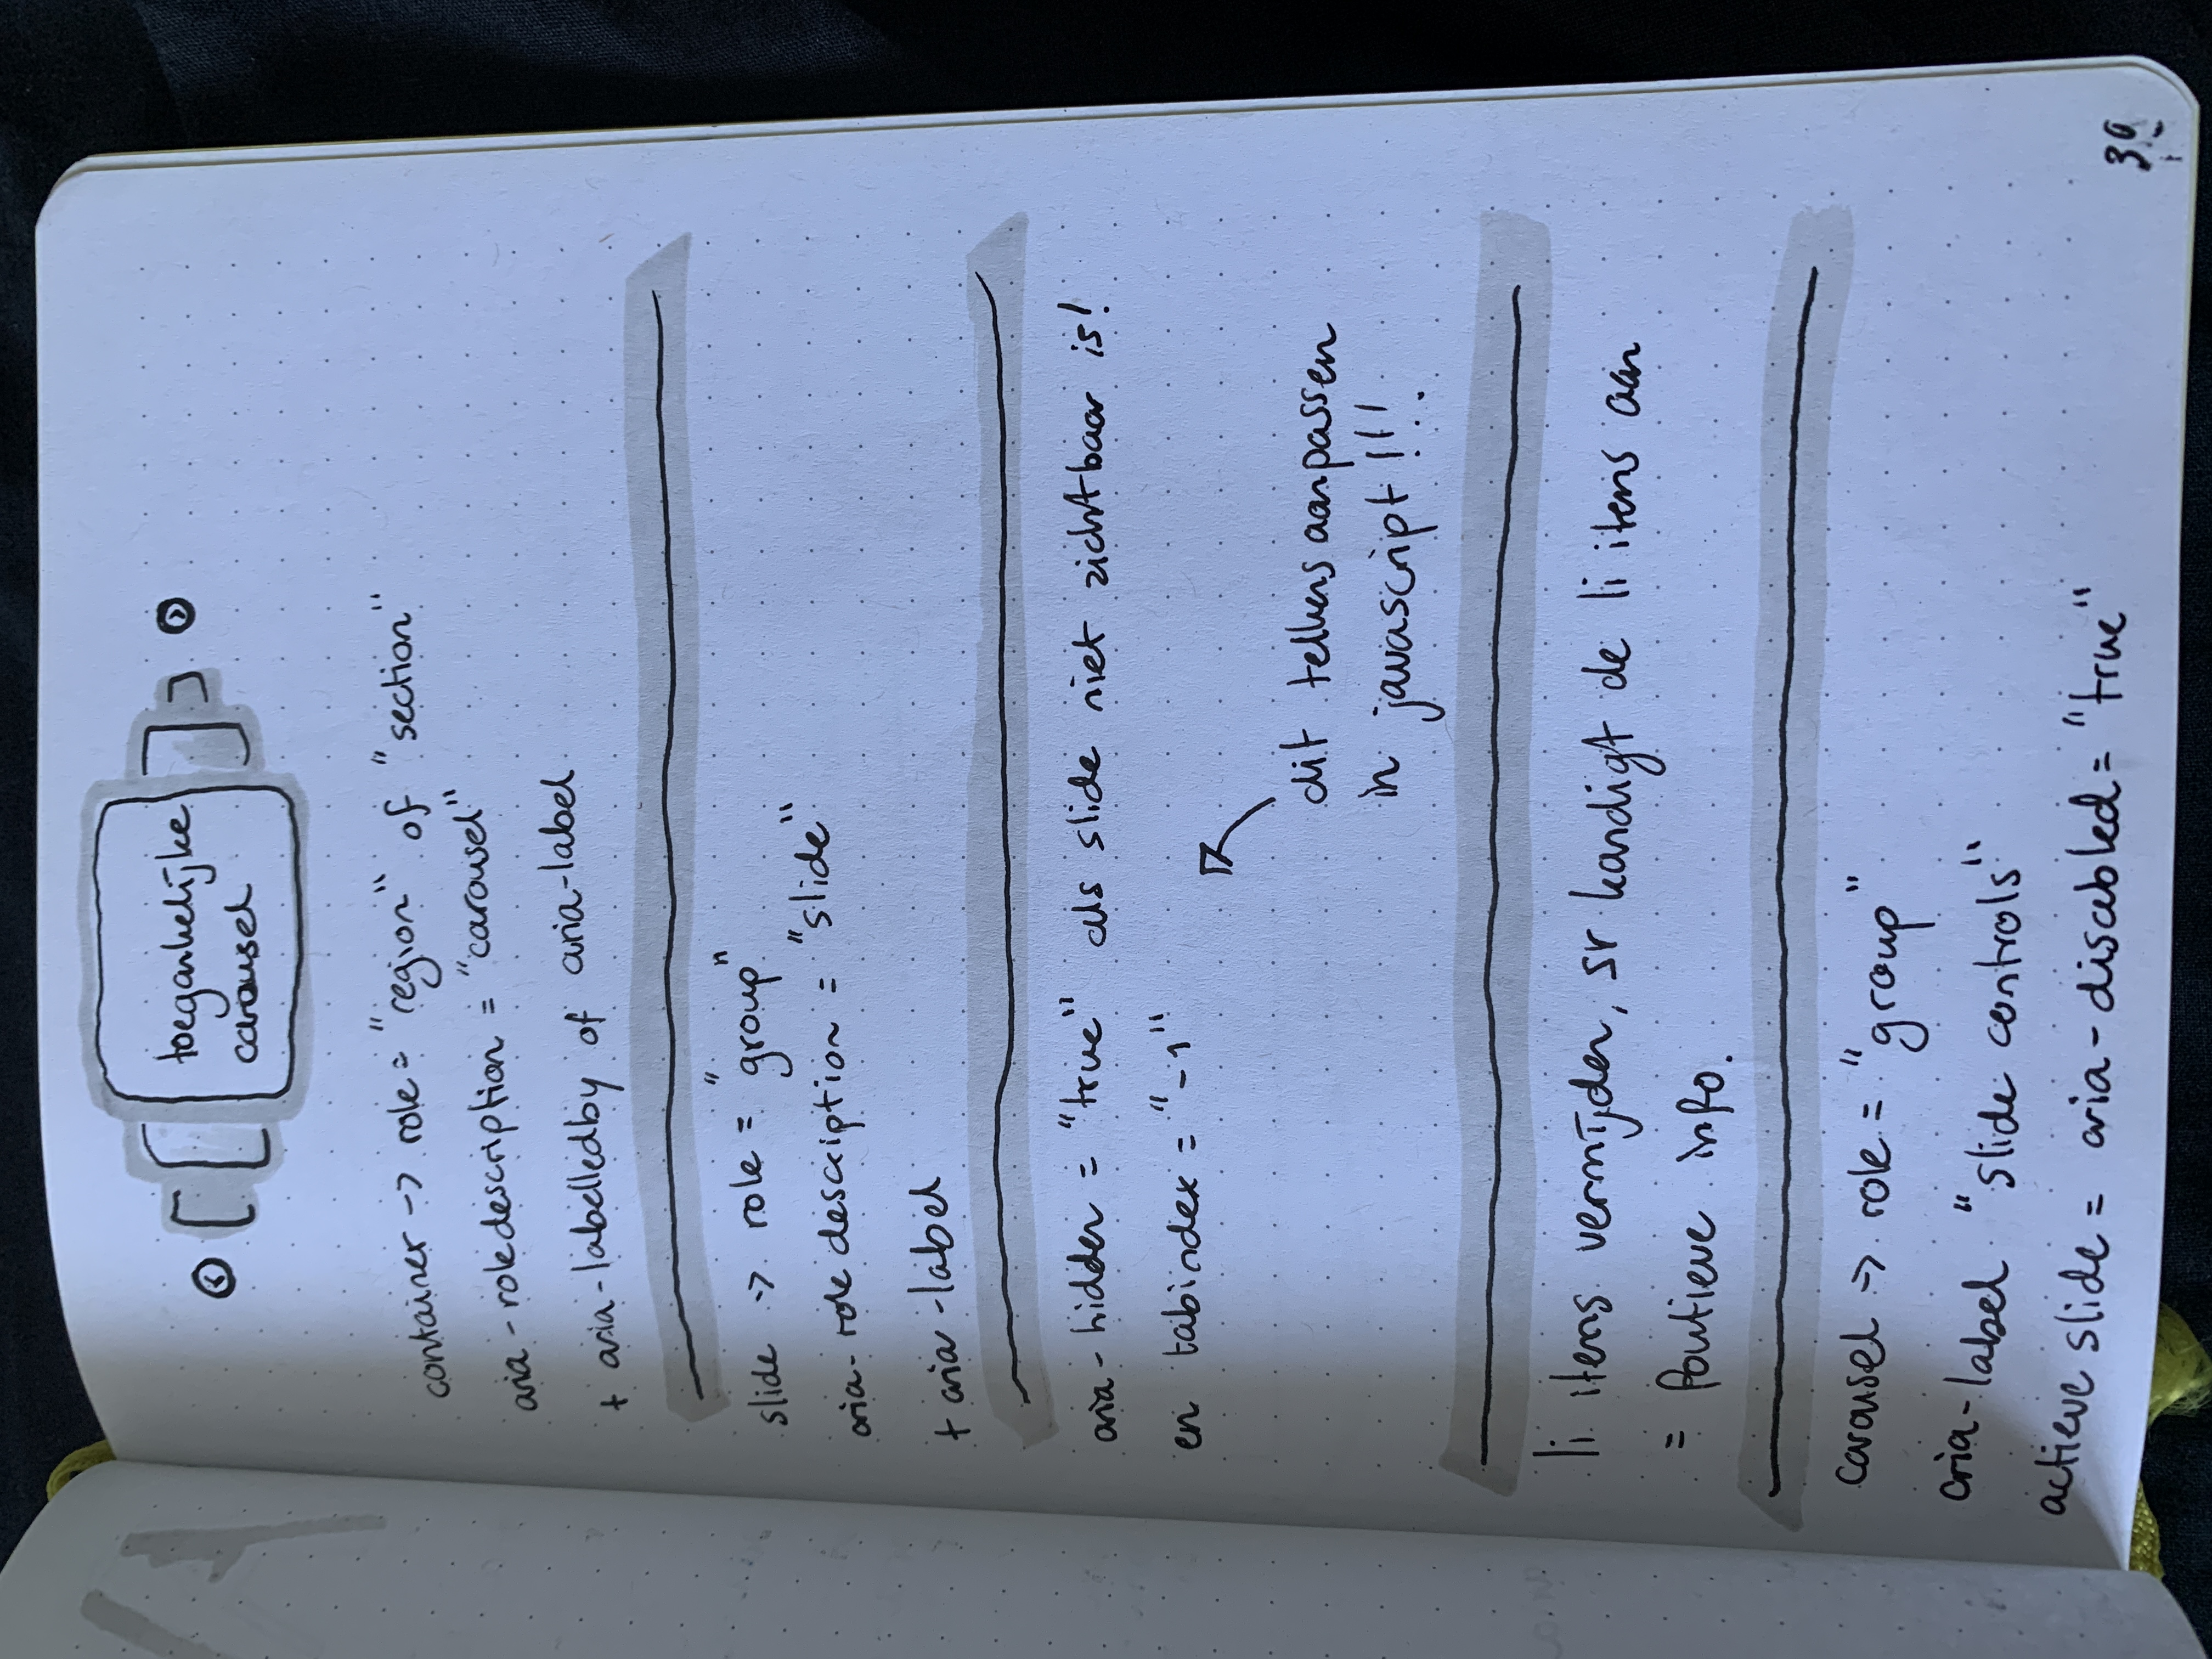 toegankelijke
carousel
container -> role = "region" of "section"
aria-roledescription = "carousel"
+ aria-labelledby of aria-label
slide -> role = "group"
aria-roledescription = "slide"
+ aria-label
aria-hidden = "true" als slide niet zichtbaar is!
en tabindex = "-1"
dit telkens aanpassen
in javascript!!!
li items vermijden, sr kondigt de li items aan
= foutieve info.
carousel -> role = "group"
aria-label "slide controls"
actieve slide = aria-disabled = "true"